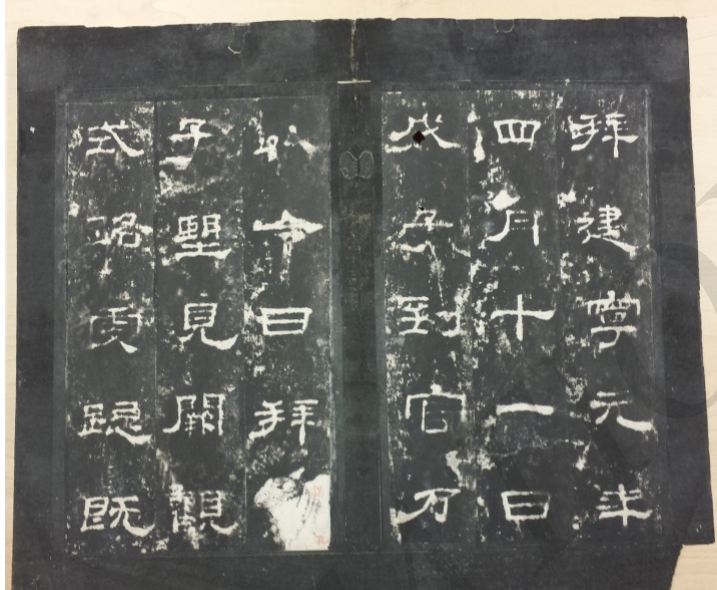 拜建寧元年
四月十一日
戊子到官乃
以令日拜
子望見闕觀
式路虔跽既